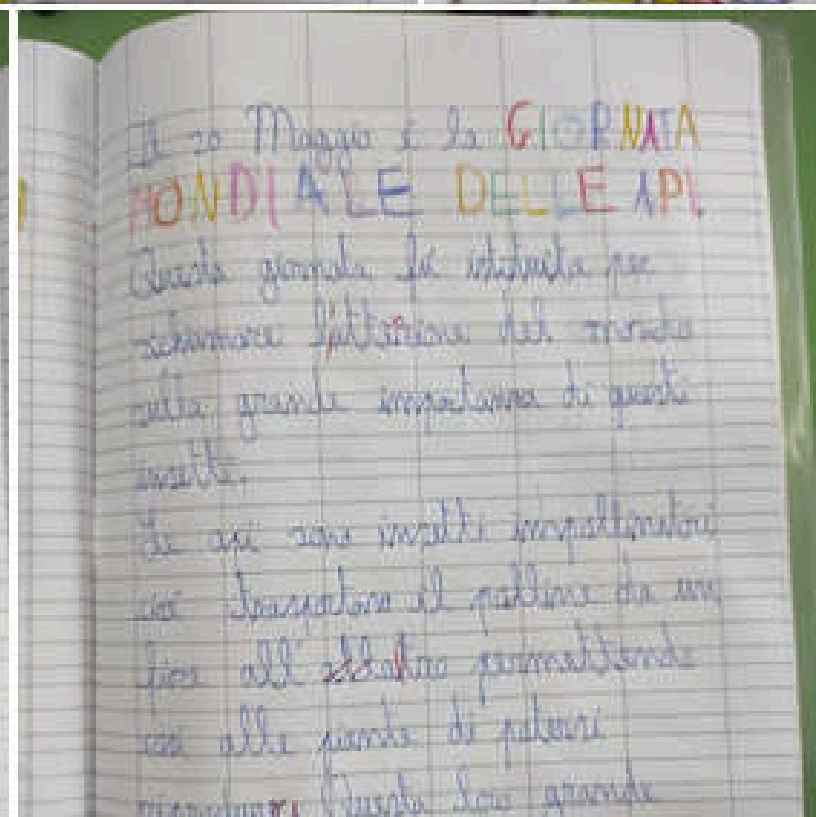 Il 20 Maggio è la GIORNATA
MONDIALE DELLE API.
Questa giornata fu istituita per
richiamare l'attenzione del mondo
sulla grande importanza di questi
insetti.
Le api sono insetti impollinatori
cioè trasportano il polline da un
fiore all' altro permettendo
così alle piante di potersi
riprodurre. Questa loro grande